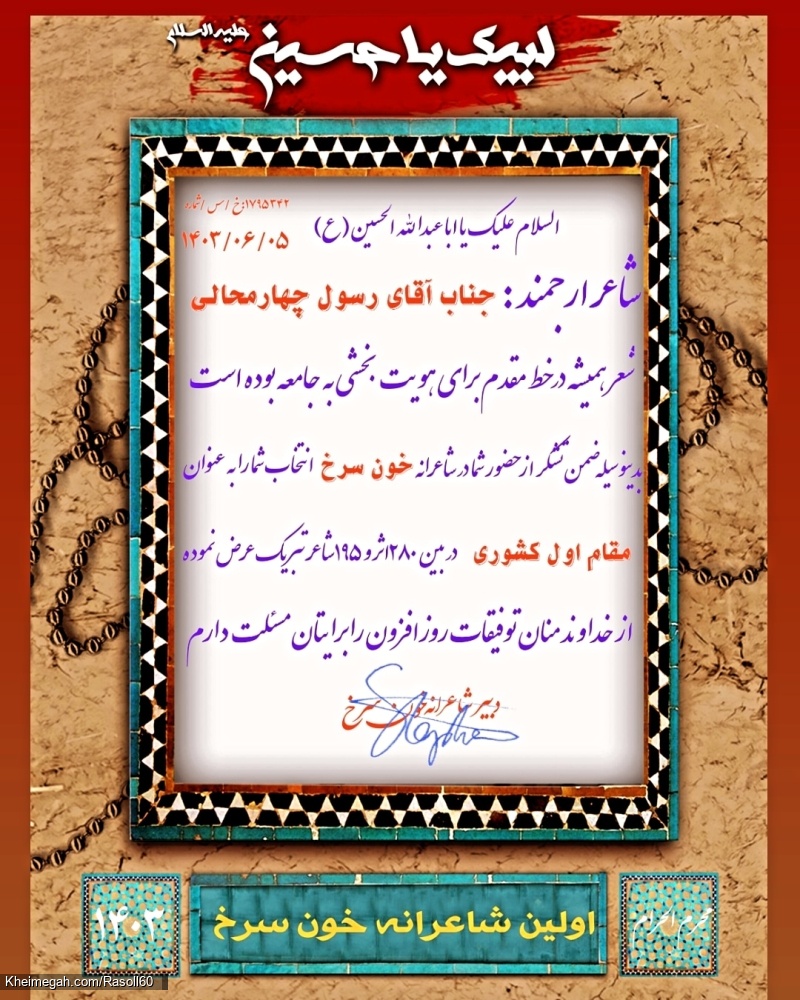 لبیک یا حسین علیه السلام
۱۷۹۵۳۴۲:خ / س / شماره
السلام علیک یا اباعبدالله الحسین (ع)
۱۴۰۳/۰۶/۰۵
شاعر ارجمند : جناب آقای رسول چهارمحالی
شعر همیشه در خط مقدم برای هویت بخشی به جامعه بوده است
بدینوسیله ضمن تشکر از حضور شما در شاعرانه خون سرخ انتخاب شما را به عنوان
مقام اول کشوری در بین ۲۸۰ اثر و ۱۹۵ شاعر تبریک عرض نموده
از خداوند منان توفیقات روز افزون را برایتان مسئلت دارم
دبیر شاعرانه خون سرخ
محرم الحرام
اولین شاعرانه خون سرخ
۱۴۰۳
Kheimegah.com/Rasoll60